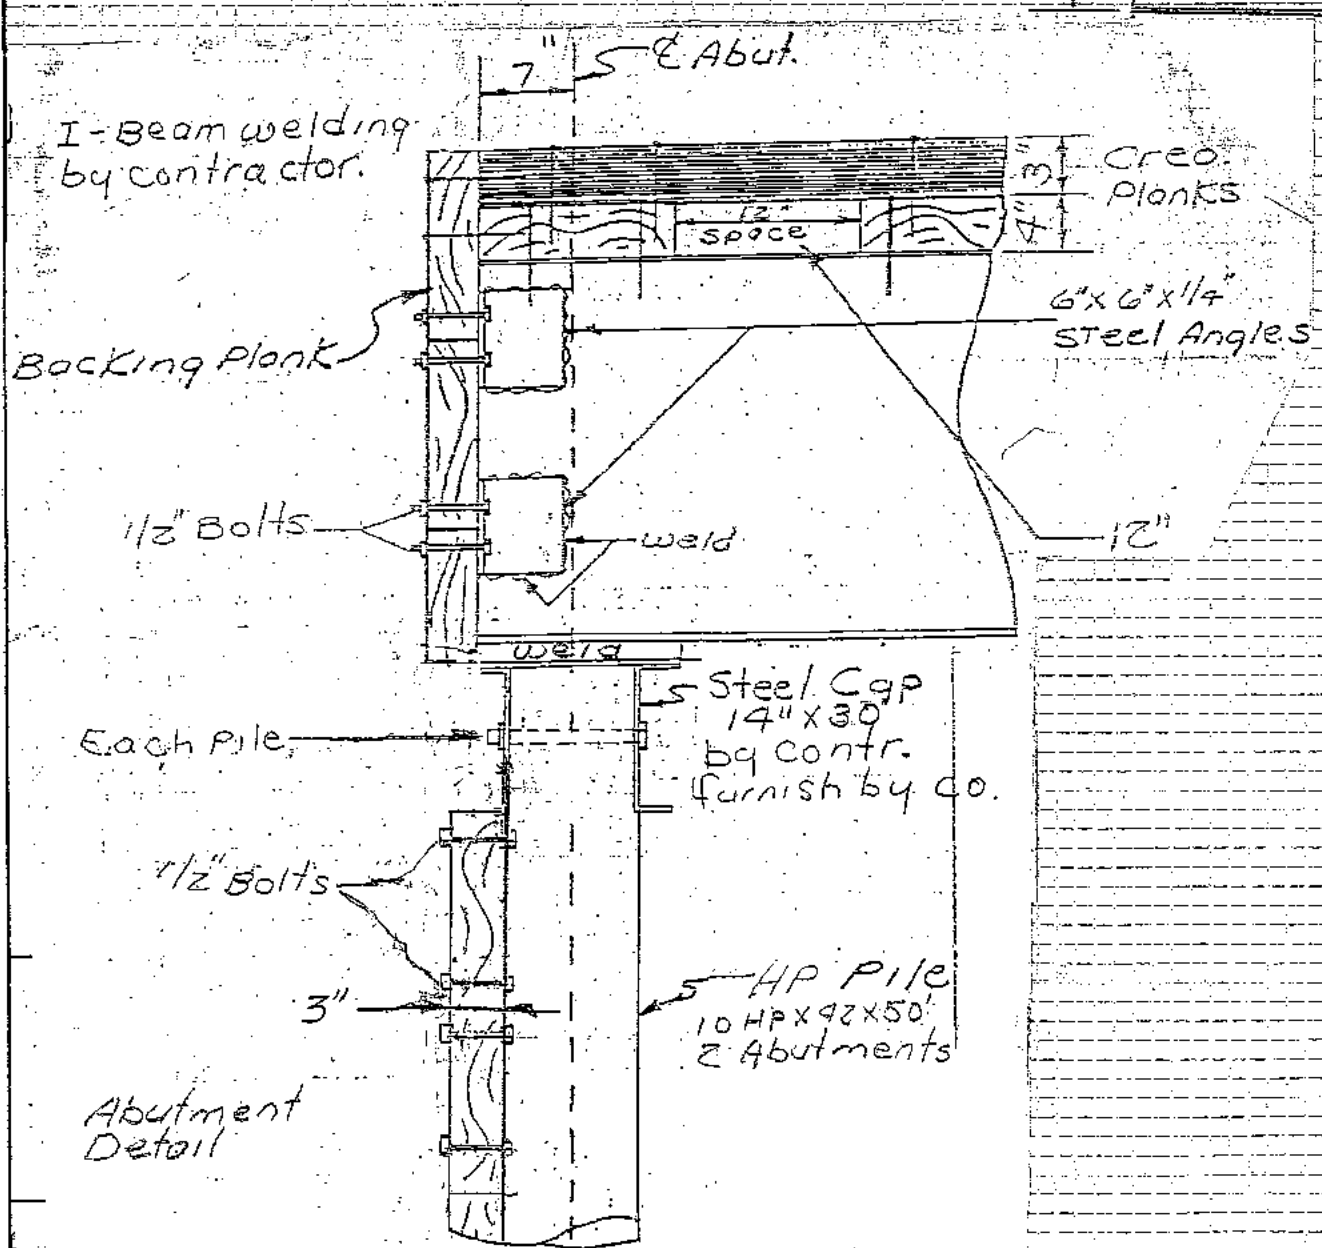 7"
℄ Abut.
I-Beam welding
by contractor.
3"
Creo.
Planks
4"
12"
space
6" x 6" x 1/4"
Steel Angles
Backing Plank
1/2" Bolts
weld
12"
weld
Steel Cap
14" x 30'
by contr.
furnish by co.
Each Pile
1/2" Bolts
3"
HP Pile
10 HP x 42 x 50'
2 Abutments
Abutment
Detail